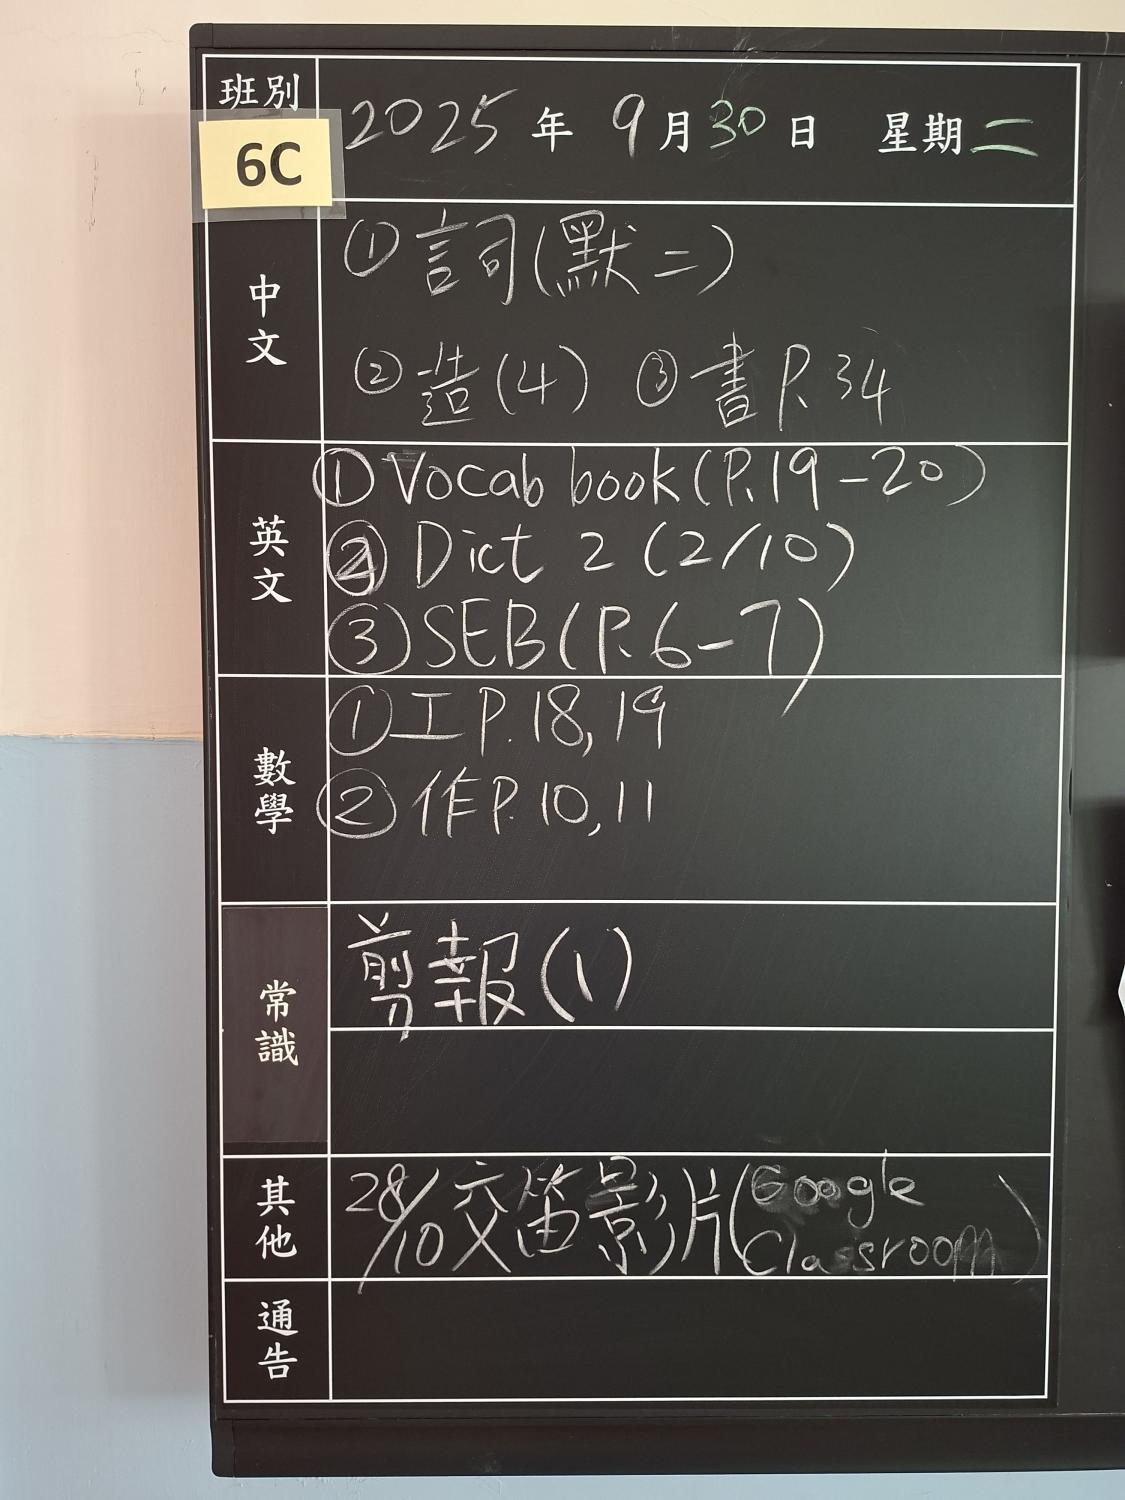 班別
6C
2025年 9月30日 星期二
中文
①詞(默二)
②造(4) ③書P.34
英文
①Vocab book(P.19-20)
② Dict 2 (2/10)
③SEB(P.6-7)
數學
①工P.18,19
②作P.10,11
常識
剪報(1)
其他
28/10交笛影片(Google Classroom)
通告